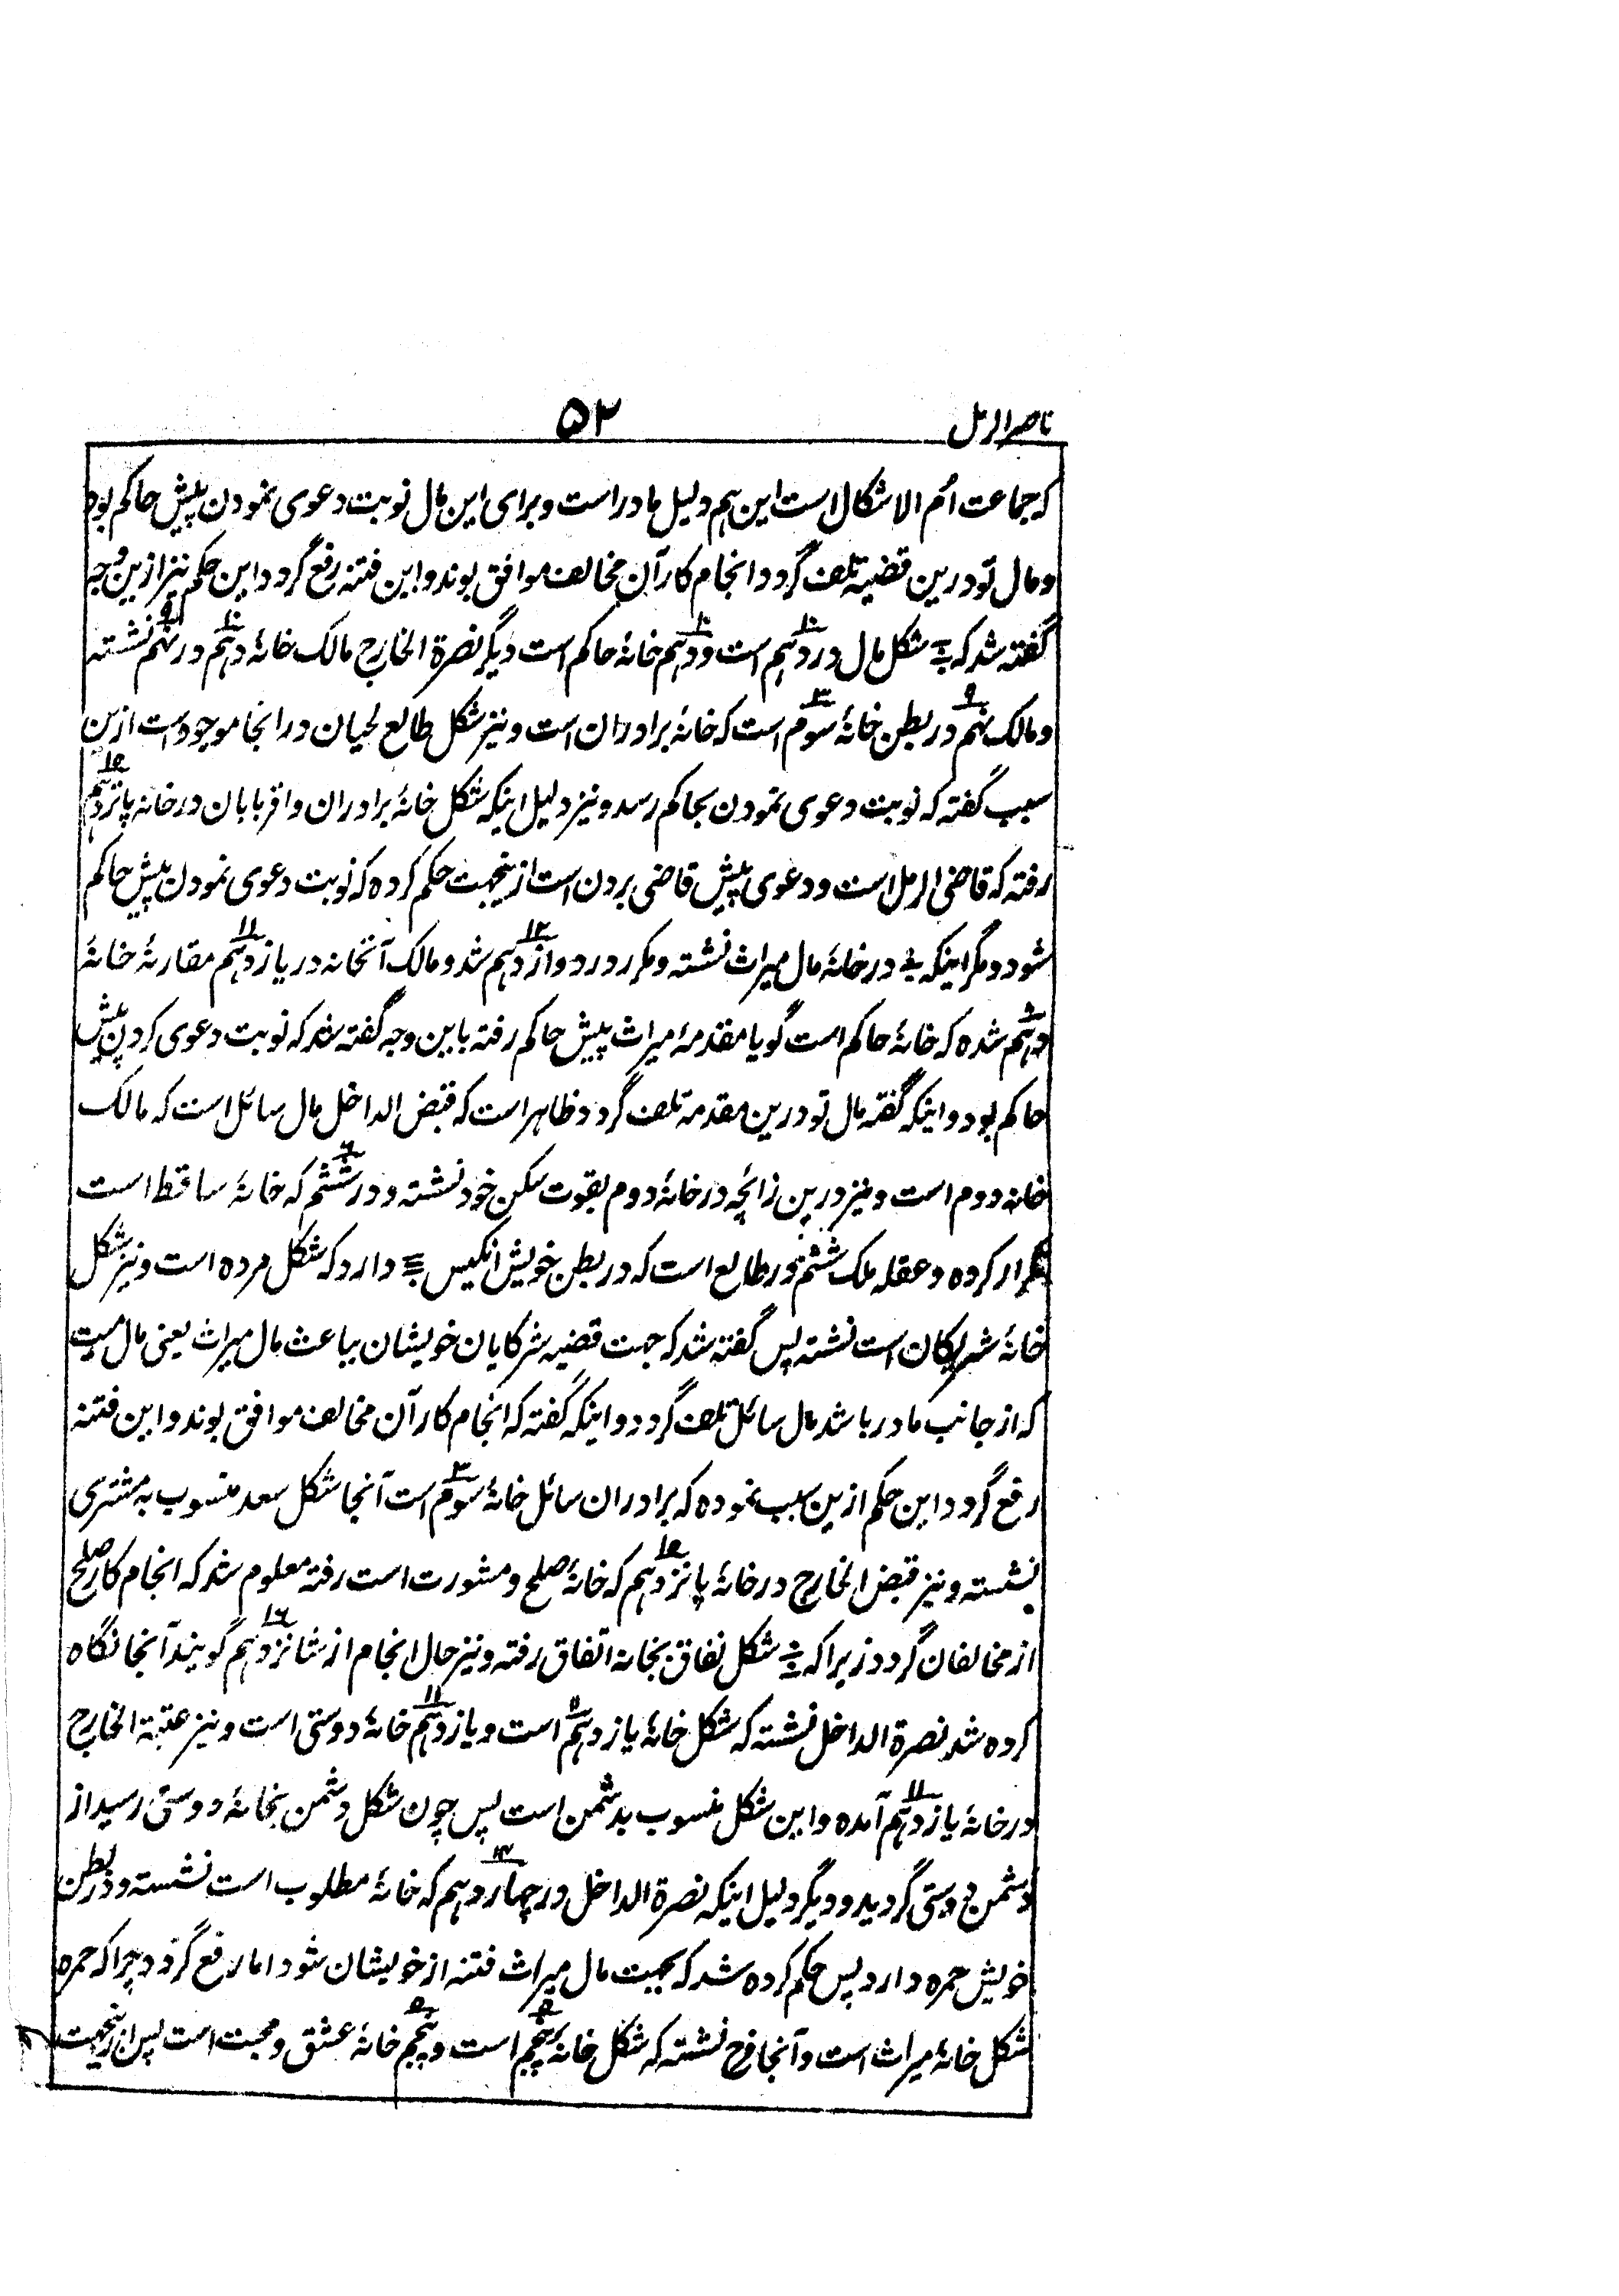 ناصر الرمل
۵۲
که جماعت ام الاشکال است این هم دلیل مادر است و برای این مال نوبت دعوی نمودن پیش حاکم بود
و مال تو درین قضیه تلف گردد انجام کار آن مخالف موافق بوند و این فتنه رفع گردد این حکم نیز ازین وجه
گفته شد که شکل مال در دهم است و دهم خانهٔ حاکم است دیگر نصرة الخارج مالک خانهٔ دهم در نهم نشسته
و مالک نهم در بطن خانهٔ سوم است که خانهٔ برادران است و نیز شکل طالع لحیان در انجا موجود است ازین
سبب گفته که نوبت دعوی نمودن بحاکم رسد و نیز دلیل اینکه شکل خانهٔ برادران و اقربایان در خانه پانزدهم
رفته که قاضی الرمل است و دعوی پیش قاضی بردن است ازینجهت حکم کرده که نوبت دعوی نمودن پیش حاکم
شود دیگر اینکه در خانهٔ مال میراث نشسته و مکرر در دوازدهم شد و مالک آنخانه در یازدهم مقارنهٔ خانهٔ
دهم شده که خانهٔ حاکم است گویا مقدمهٔ میراث پیش حاکم رفته باین وجه گفته شد که نوبت دعوی کردن پیش
حاکم بود و اینکه گفته مال تو درین مقدمه تلف گردد ظاهر است که قبض الداخل مال سائل است که مالک
خانه دوم است و نیز درین زائچه در خانهٔ دوم بقوت سکن خود نشسته و در ششم که خانهٔ ساقط است
تکرار کرده و عقله ملک ششم در طالع است که در بطن خویش انکیس دارد که شکل مرده است و نیز شکل
خانهٔ شریکان است نشسته پس گفته شد که جهت قضیه شرکایان خویشان بباعث مال میراث یعنی مال میت
که از جانب مادر باشد مال سائل تلف گردد و اینکه گفته که انجام کار آن مخالف موافق بوند و این فتنه
رفع گردد این حکم ازین سبب نموده که برادران سائل خانهٔ سوم است آنجا شکل سعد منسوب به مشتری
نشسته و نیز قبض الخارج در خانهٔ پانزدهم که خانهٔ صلح و مشورت است رفته معلوم شد که انجام کار صلح
از مخالفان گردد زیرا که شکل نفاق بخانه اتفاق رفته و نیز حال انجام از شانزدهم گویند آنجا نگاه
کرده شد نصرة الداخل نشسته که شکل خانهٔ یازدهم است و یازدهم خانهٔ دوستی است و نیز عتبة الخارج
در خانهٔ یازدهم آمده و این شکل منسوب بدشمن است پس چون شکل دشمن بخانهٔ دوستی رسید از
دشمن دوستی گردید و دیگر دلیل اینکه نصرة الداخل در چهاردهم که خانهٔ مطلوب است نشسته و در بطن
خویش حمره دارد پس حکم کرده شد که بجهت مال میراث فتنه از خویشان شود اما رفع گردد چرا که حمره
شکل خانهٔ میراث است و آنجا فرح نشسته که شکل خانهٔ پنجم است و پنجم خانهٔ عشق و محبت است پس ازینجهت